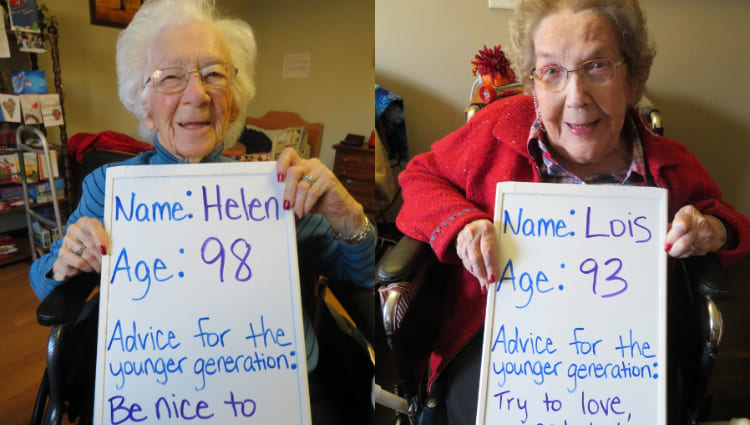 Name: Helen
Age: 98
Advice for the
younger generation:
Be nice to
Name: Lois
Age: 93
Advice for the
younger generation:
Try to love,